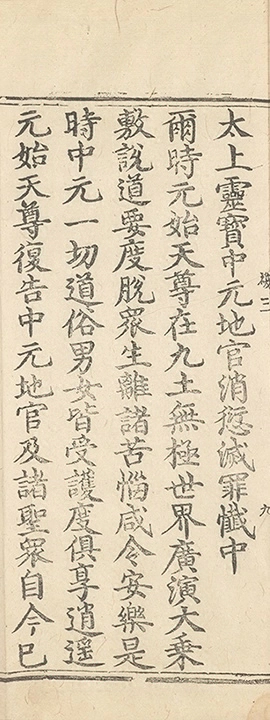 太上靈寶中元地官消愆滅罪懺中
爾時元始天尊在九土無極世界廣演大乗
敷說道要度脫衆生離諸苦惱咸令安樂是
時中元一切道俗男女皆受護度俱享逍遥
元始天尊復告中元地官及諸聖衆自今已
三
九